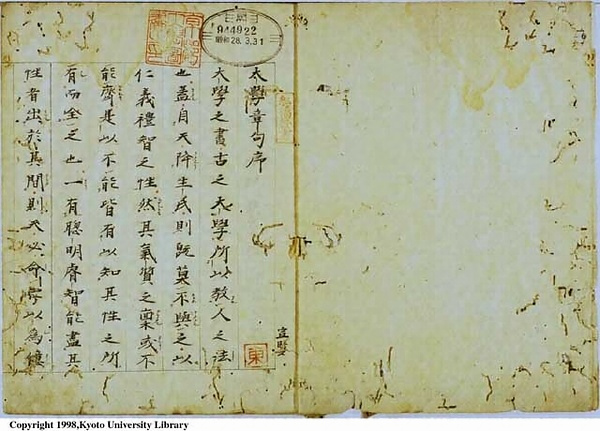 大學章句序
大學之書古之大學所以教人之法
也盖自天降生民則既莫不與之以
仁義禮智之性然其氣質之稟或不
能齊是以不能皆有以知其性之所
有而全之也一有聰明睿智能盡其
性者出於其間則天必命之以為億
宣賢
東
944922
昭和28.3.31
Copyright 1998,Kyoto University Library